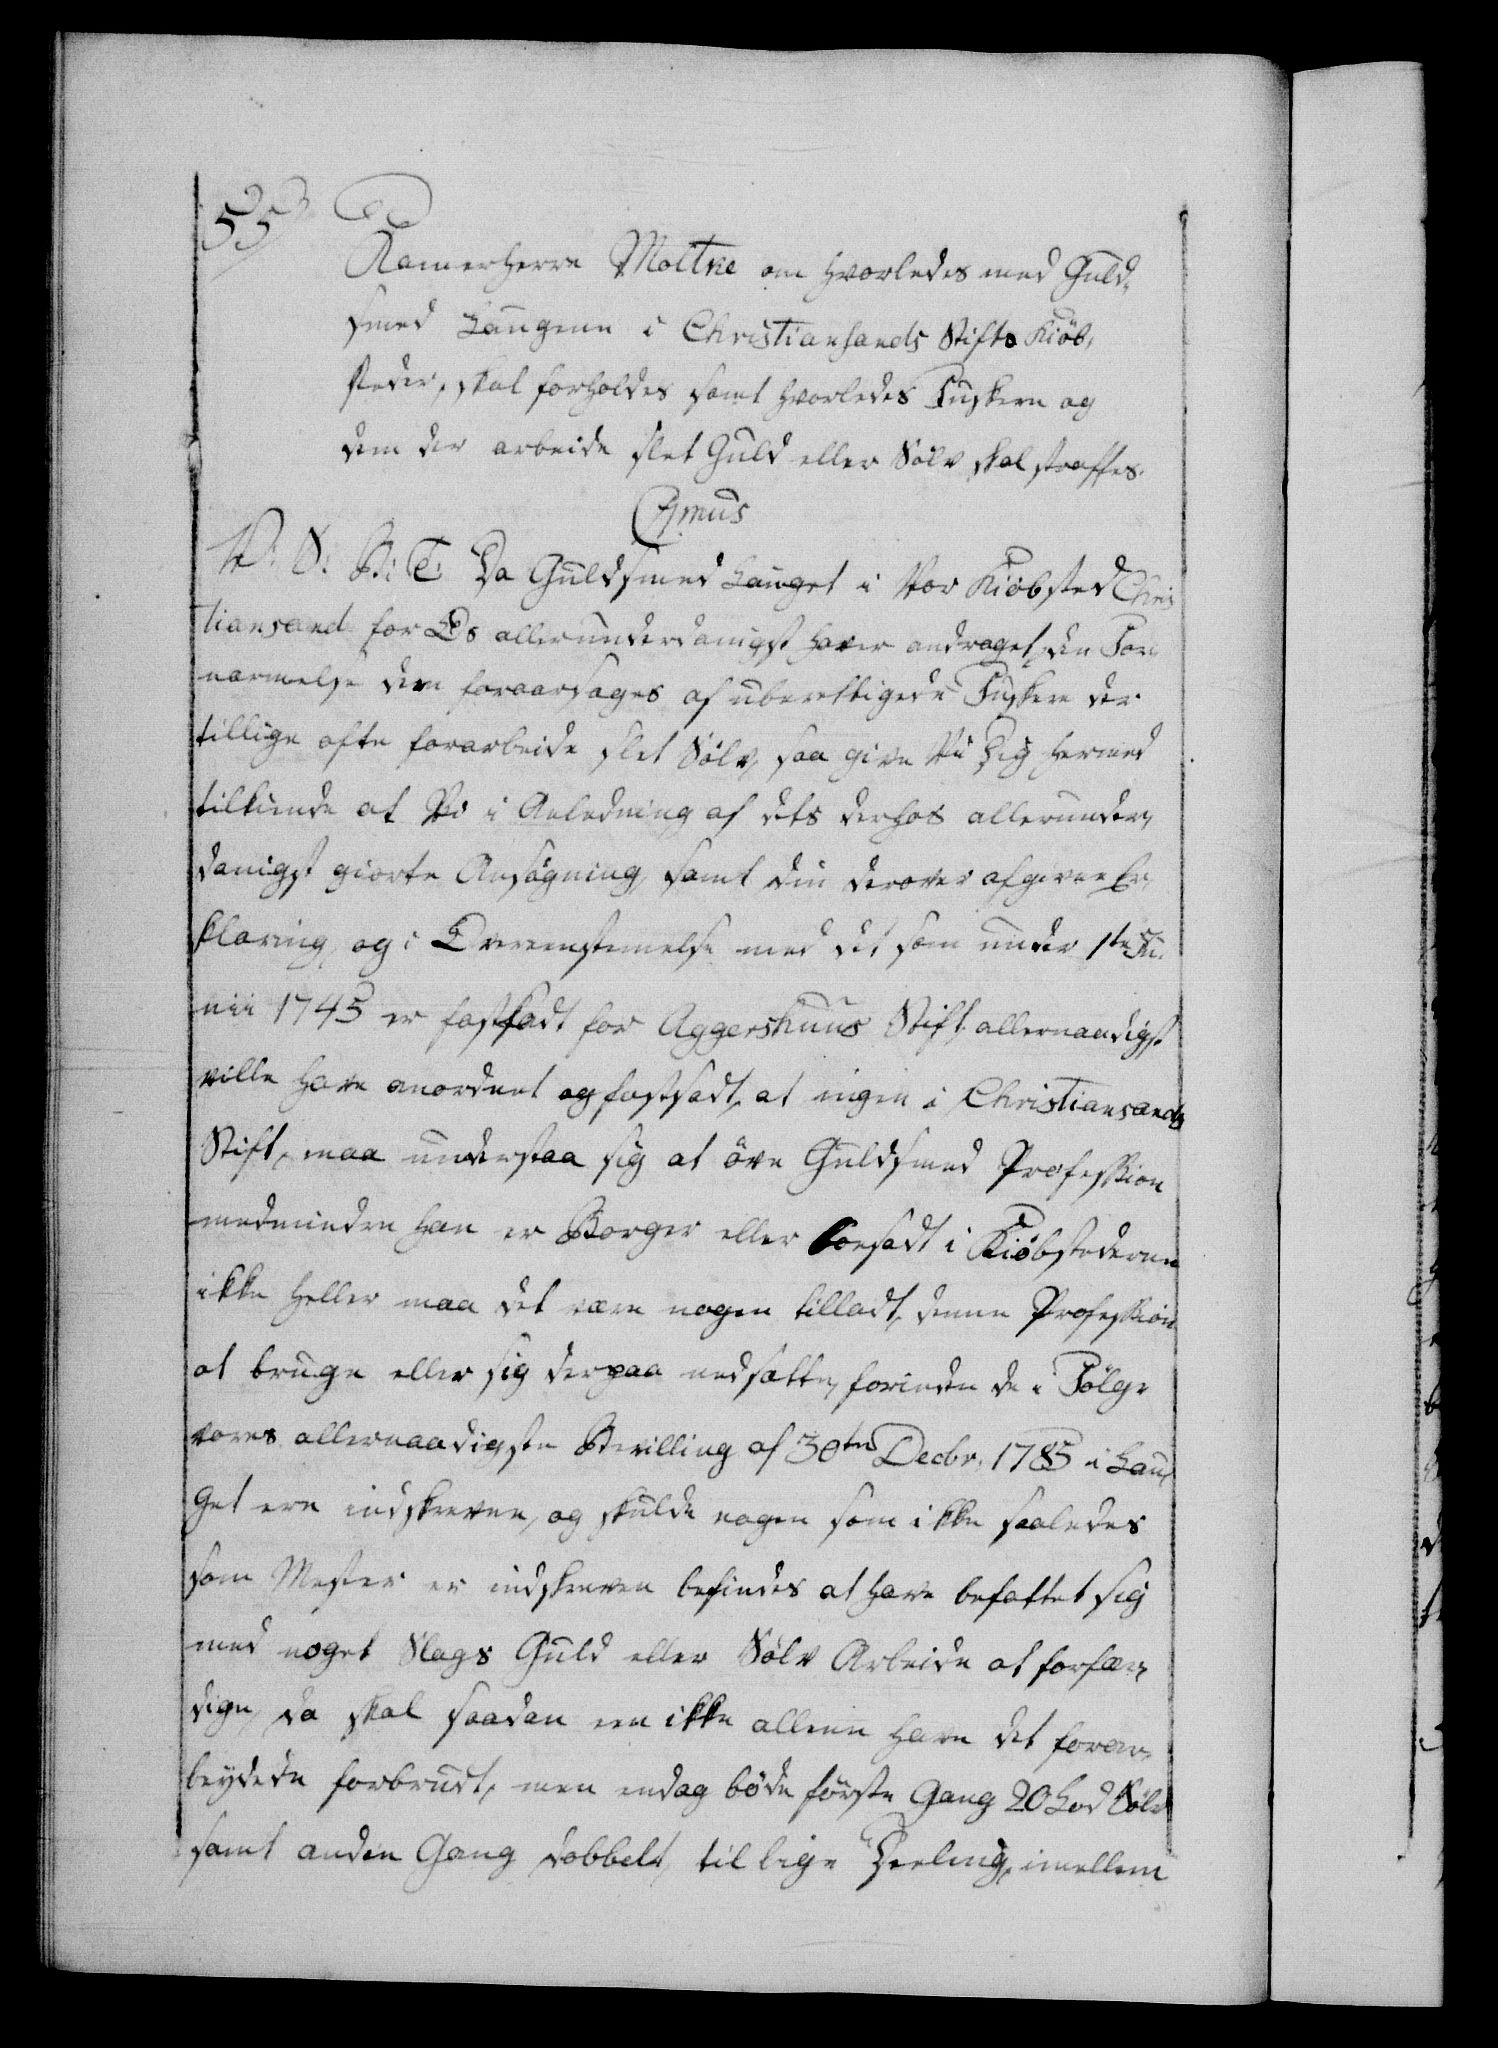 55
Kamerherre Moltke om hvorledes med Guld,
smed Laugene i Christiansands Stifts Kiöb,
steder, skal forholdes samt hvorledes Fuskere og
dem der arbeide slet Guld eller Sölv skal straffes.
C7mus
V: S: B: T: Da Guldsmed Lauget i Vor Kiöbsted Chris
tiansand for Os allerunderdanigst haver andraget, den For
nærmelse dem foraarsages af uberettigede Fuskere der
tillige ofte forarbeide slet Sölv, saa give Vi Dig hermed
tilkiende at Vi i Anledning af dets derhos allerunder,
danigst giorte Ansögning, samt din derover afgivne Er,
klæring, og i Overeensstemelse med det som under 1te Ju,
nii 1745 er fastsadt for Aggershuus Stift allernaadigst
ville have anordnet og fastsadt, at ingen i Christiansands
Stift, maa understaa sig at öve Guldsmed Profession
medmindre han er Borger eller boesadt i Kiöbstæderne
ikke heller maa det være nogen tilladt, denne Profession
at bruge eller sig derpaa nedsætte, forinden de i Fölge
vores allernaadigste Bevilling af 30te Decbr. 1785 i Lau,
get ere indskrevne, og skulde nogen som ikke saaledes
som Mester er indskreven befindes at have befattet sig
med noget Slags Guld eller Sölv Arbeide at forfær,
dige, da skal saadan een ikke allene have det forar,
beydede forbrudt, men endog böde förste Gang 20 Lod Sölv
samt anden Gang dobbelt, til lige Deeling, imellem